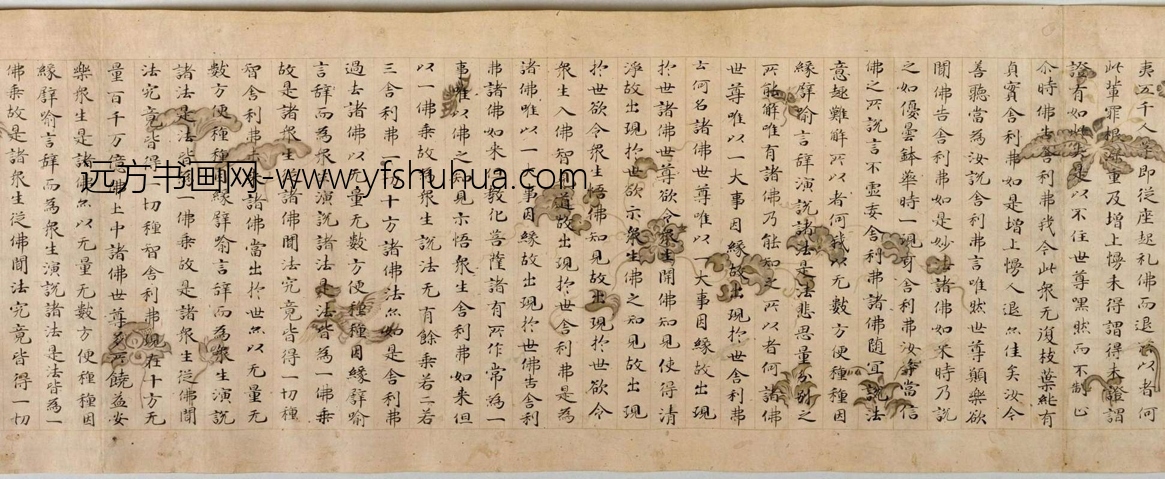 夷五千人等即從座起礼佛而退所以者何
此輩罪根深重及增上慢未得謂得未證謂
證有如此失是以不住世尊嘿然而不制止
尒時佛告舍利弗我今此衆无復枝葉純有
貞實舍利弗如是增上慢人退亦佳矣汝今
善聽當為汝說舍利弗言唯然世尊願樂欲
聞佛告舍利弗如是妙法諸佛如来時乃說
之如優曇鉢華時一現耳舍利弗汝等當信
佛之所說言不虛妄舍利弗諸佛随冝說法
意趣難解所以者何我以无數方便種種因
緣譬喻言辞演說諸法是法非思量分別之
所能解唯有諸佛乃能知之所以者何諸佛
世尊唯以一大事因緣故出現於世舍利弗
云何名諸佛世尊唯以一大事因緣故出現
於世諸佛世尊欲令衆生開佛知見使得清
淨故出現於世欲示衆生佛之知見故出現
於世欲令衆生悟佛知見故出現於世欲令
衆生入佛知見道故出現於世舍利弗是為
諸佛唯以一大事因緣故出現於世佛告舍利
弗諸佛如来但教化菩薩諸有所作常為一
事唯以佛之知見示悟衆生舍利弗如来但
以一佛乘故為衆生說法无有餘乘若二若
三舍利弗一切十方諸佛法亦如是舍利弗
過去諸佛以无量无數方便種種因緣譬喻
言辞而為衆生演說諸法是法皆為一佛乘
故是諸衆生從諸佛聞法究竟皆得一切種
智舍利弗未来諸佛當出於世亦以无量无
數方便種種因緣譬喻言辞而為衆生演說
諸法是法皆為一佛乘故是諸衆生從佛聞
法究竟皆得一切種智舍利弗現在十方无
量百千万億佛土中諸佛世尊多所饒益安
樂衆生是諸佛亦以无量无數方便種種因
緣譬喻言辞而為衆生演說諸法是法皆為一
佛乘故是諸衆生從佛聞法究竟皆得一切
远方书画网-www.yfshuhua.com